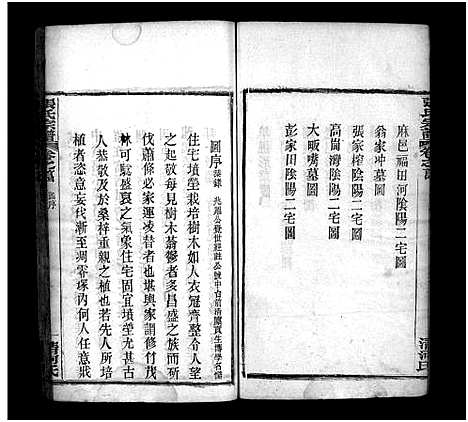 麻邑福田河陰陽二宅圖
翁家冲墓圖
張家榨陰陽二宅圖
高崗灣陰陽二宅圖
大畈嘴墓圖
彭家田陰陽二宅圖
清河氏
圖序
住宅墳塋栽培樹木如人衣冠齊整令人望
之起敬每見樹木蓊鬱者多昌盛之族而斬
伐蕭條必家運凌替者也堪輿家謂修竹茂
林可驗盛衰之氣象住宅固宜墳塋尤
人恭敬及於桑梓重親之植也若先人所培
植者恣意妄伐漸至凋零琢丙任人任意戕
張氏宗譜
清河氏